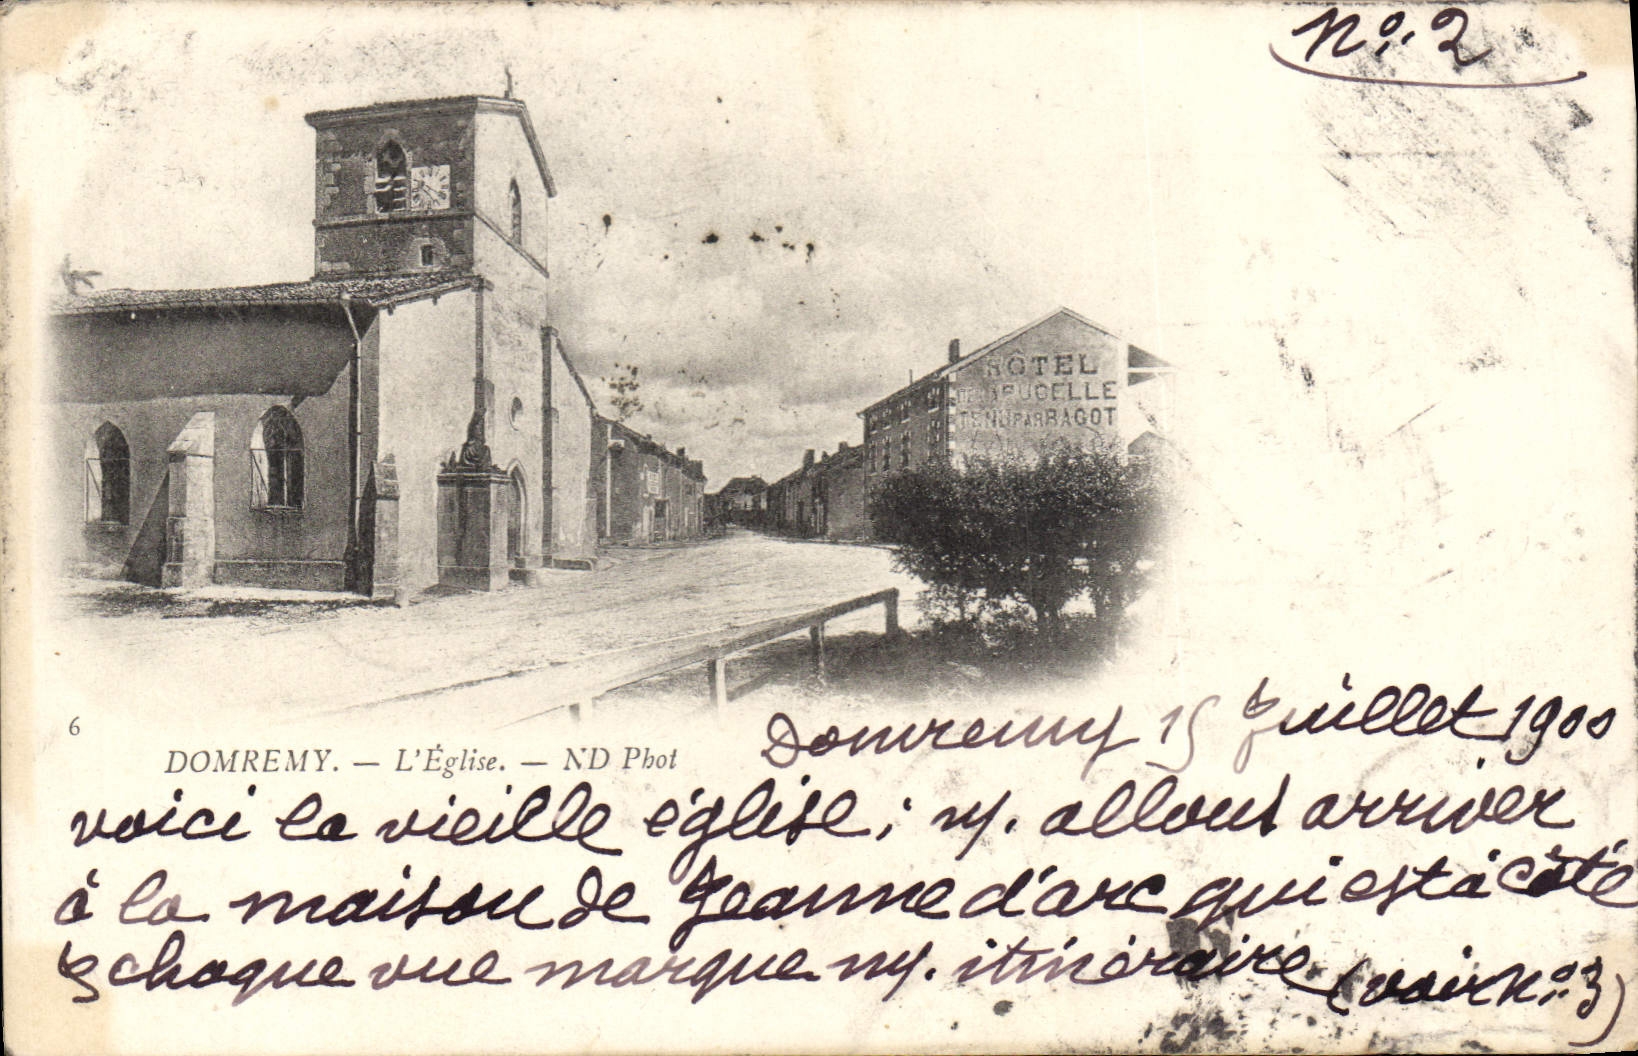 No. 2
HÔTEL
DE LA PUCELLE
TENU PAR RAGOT
6
DOMREMY. — L'Église. — ND Phot
Domremy 15 Juillet 1900
voici la vieille église; ns. allons arriver
à la maison de Jeanne d'arc qui est à côté
chaque vue marque ns. itinéraire (voir No. 3)